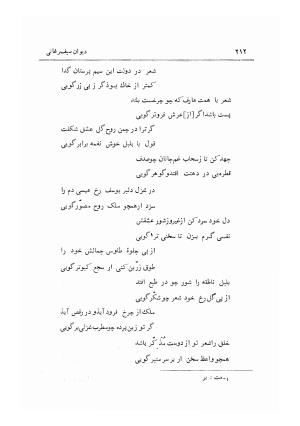 ۲۱۲ دیوان سیف فرغانی
شعر در دولت این سیم پرستان گدا
کمتر از خاك بود گر ز پی زر گویی
شعر با همت عارف که چو چرخست بلند
پست باشد اگر [از] عرش فروتر گویی
گر ترا در چمن روح گل عشق شکفت
قول با بلبل خوش نغمه برابر گویی
جهد کن تا ز سحاب غم جانان چو صدف
قطره یی در دهنت افتد و گوهر گویی
در غزل دلبر یوسف رخ عیسی دم را
سزد ار همچو ملك روح مصور گویی
دل خود سرد کن از غیر و ز شور عشقش
نفسی گرم بزن تا سخنی تر گویی
از پی جلوهٔ طاوس جمالش خود را
طوق زرین کنی ار سجع کبوتر گویی
بلبل ناطقه را شور چو در طبع افتد
از پی گل رخ خود شعر چو شکر گویی
ملك از چرخ فرود آید و در رقص آید
گر تو زین پرده چو مطرب غزلی بر گویی
خلق را شعر تو از دوست مذکر باشد
همچو واعظ سخن ار بر سر منبر گویی